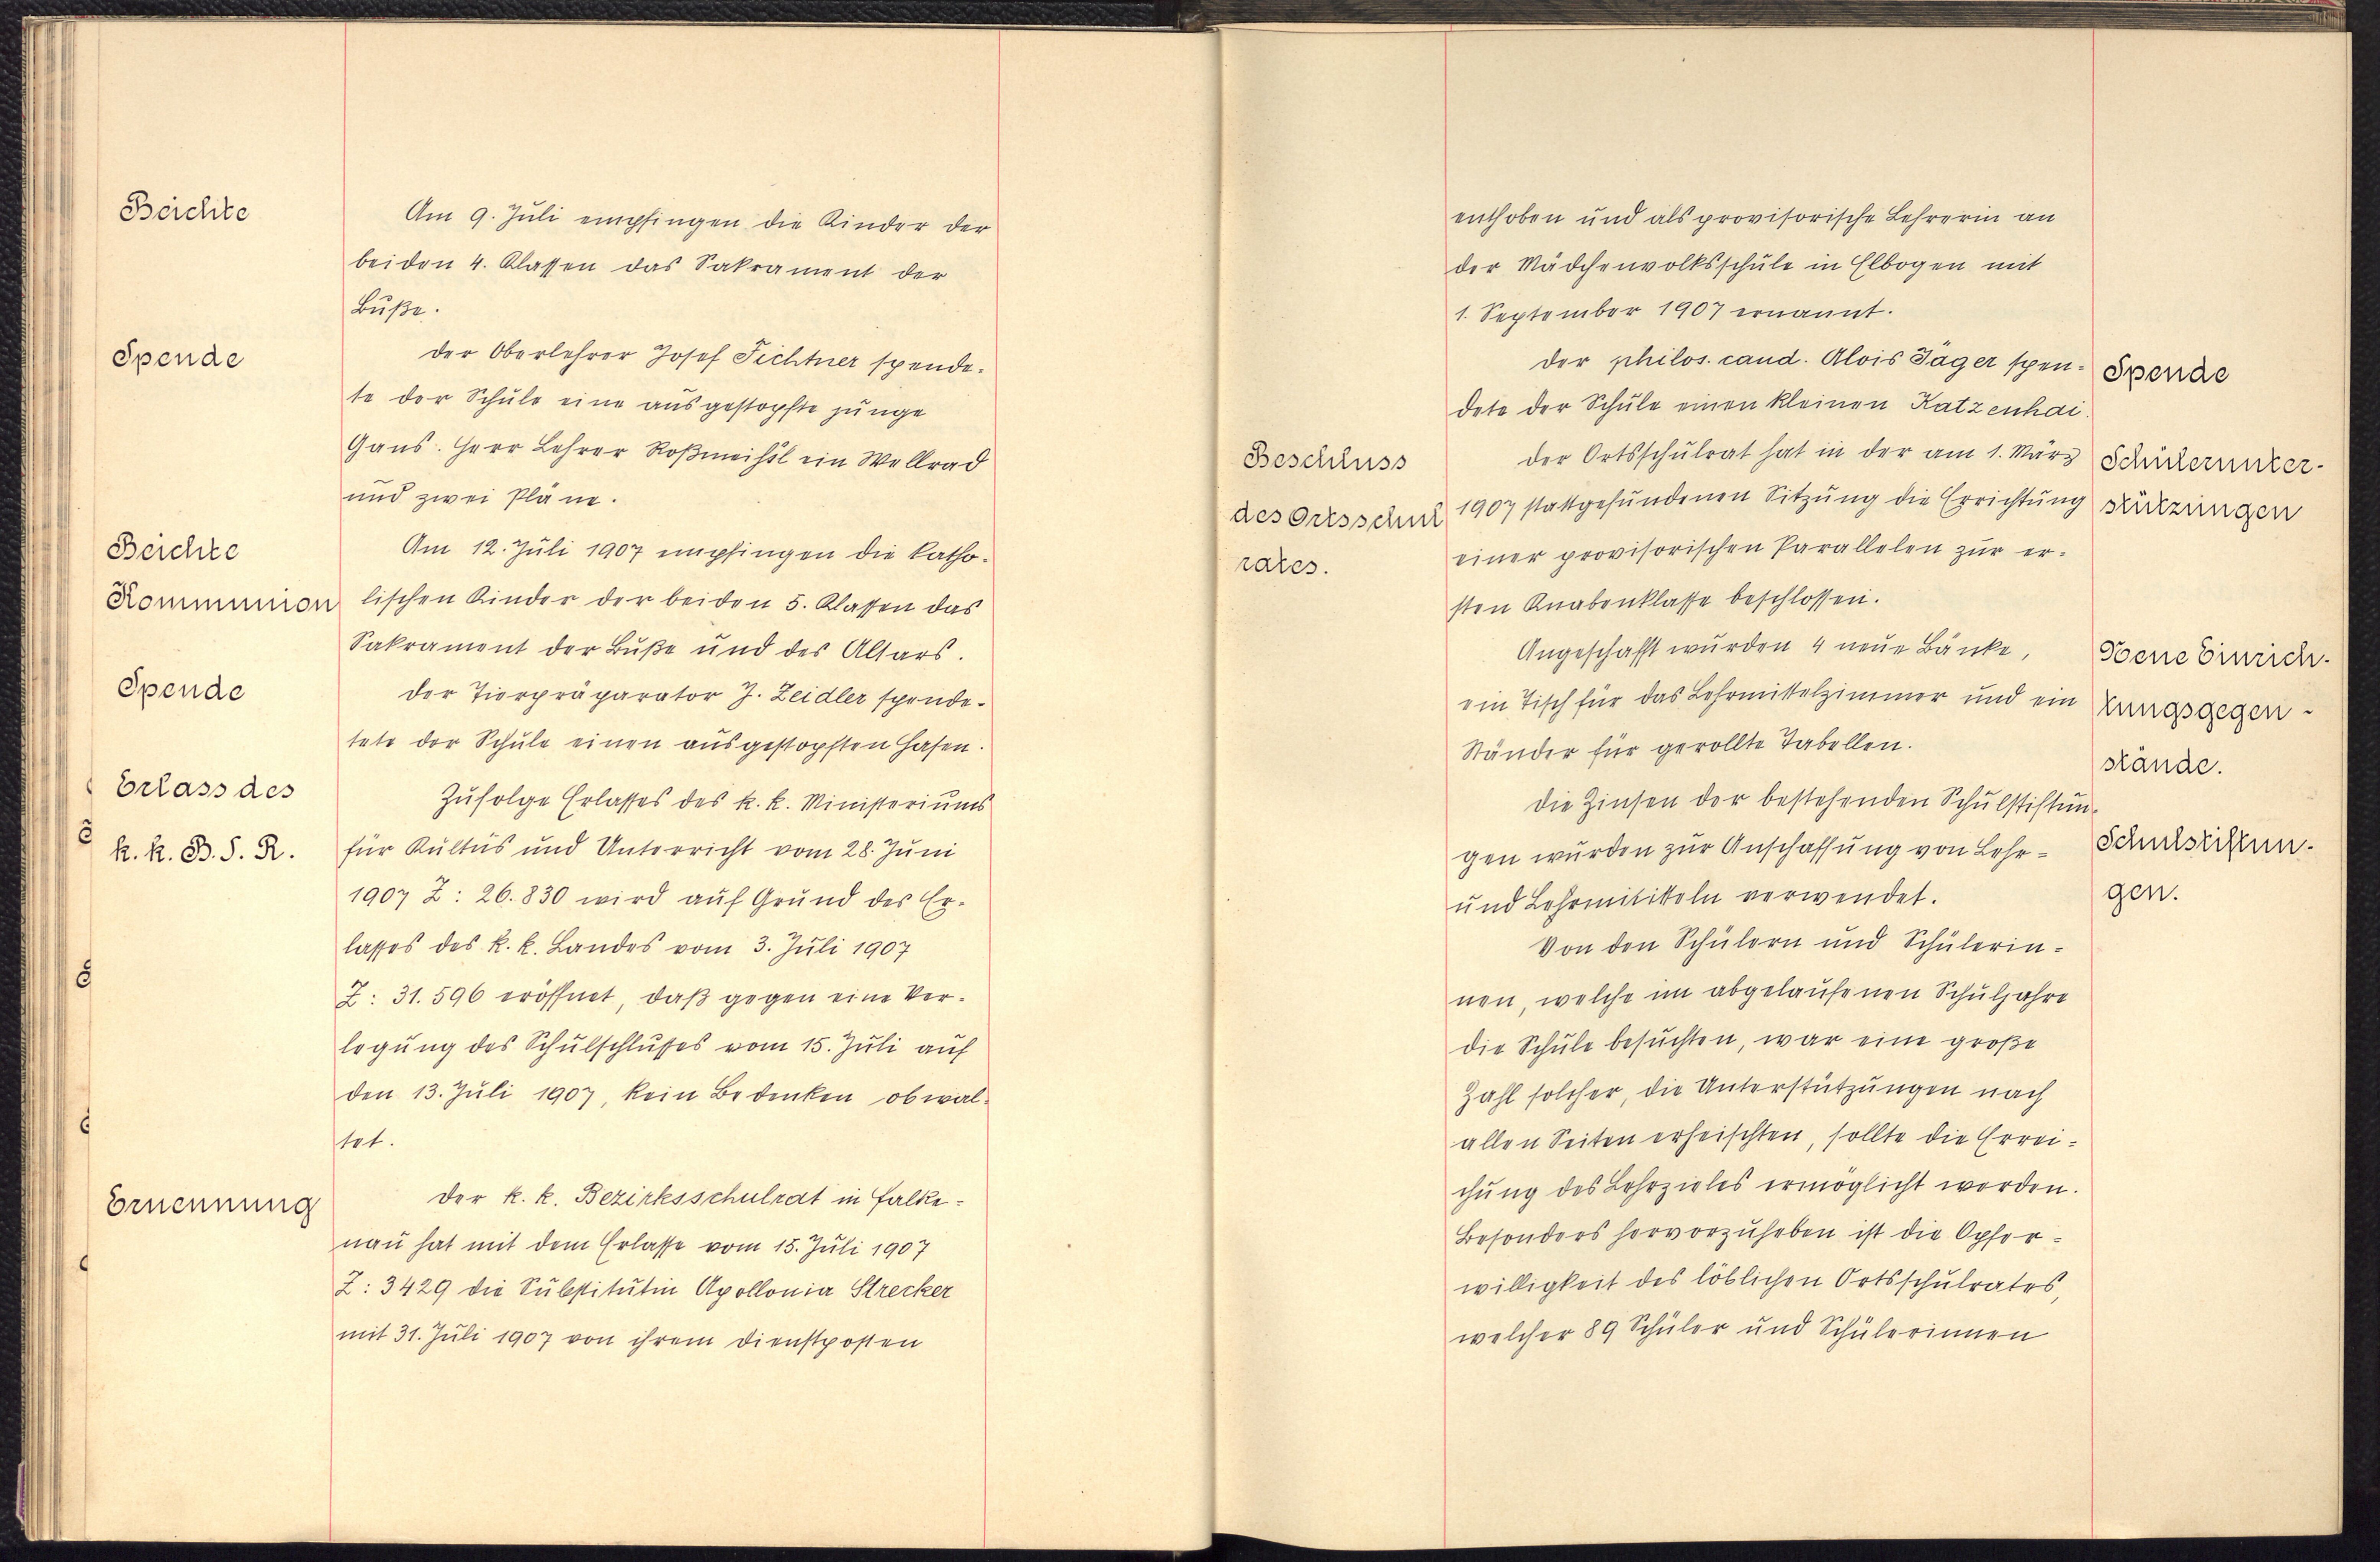 Beichte
Am 9. Juli empfingen die Kinder der
beiden 4. Klassen das Sakrament der
Buße.
Spende
Der Oberlehrer Josef Fichtner spende-
te der Schule eine ausgestopfte junge
Gans. Herr Lehrer Roßmeißl ein Wellrad
und zwei Pläne.
Beichte
Kommunion
Am 12. Juli 1907 empfingen die katho-
lischen Kinder der beiden 5. Klassen das
Sakrament der Buße und des Altars.
Spende
Der Tierpräparator J. Zeidler spende-
tete der Schule einen ausgestopften Hasen.
Erlass des
k. k. B. S. R.
Zufolge Erlasses des k. k. Ministeriums
für Kultus und Unterricht vom 28. Juni
1907 Z: 26.830 wird auf Grund des Er-
lasses des k. k. Landes vom 3. Juli 1907
Z: 31.596 eröffnet, daß gegen eine Ver-
legung des Schulschlusses vom 15. Juli auf
den 13. Juli 1907, kein Bedenken obwal-
tet.
Ernennung
Der k. k. Bezirksschulrat in Falke-
nau hat mit dem Erlasse vom 15. Juli 1907
Z: 3429 die Substitutin Apollonia Strecker
mit 31. Juli 1907 von ihrem Dienstposten
enthoben und als provisorische Lehrerin an
der Mädchenvolksschule in Elbogen mit
1. September 1907 ernannt.
Der philos. cand. Alois Jäger spen-
dete der Schule einen kleinen Katzenhai.
Spende
Beschluss
des Ortsschul
rates.
Der Ortsschulrat hat in der am 1. März
1907 stattgefundenen Sitzung die Errichtung
einer provisorischen Parallelen zur er-
sten Knabenklasse beschlossen.
Schülerunter-
stützungen
Angeschafft wurden 4 neue Bänke,
ein Tisch für das Lehrmittelzimmer und ein
Ständer für gerollte Tabellen.
Neue Einrich-
tungsgegen-
stände.
Die Zinsen der bestehenden Schulstiftun-
gen wurden zur Anschaffung von Lehr-
und Lehrmititteln verwendet.
Schulstiftun-
gen.
Von den Schülern und Schülerin-
nen, welche im abgelaufenen Schuljahre
die Schule besuchten, war eine große
Zahl solcher, die Unterstützungen nach
allen Seiten erheischten, sollte die Errei-
chung des Lehrzieles ermöglicht werden.
Besonders hervorzuheben ist die Opfer-
willigkeit des löblichen Ortsschulrates,
welcher 89 Schüler und Schülerinnen